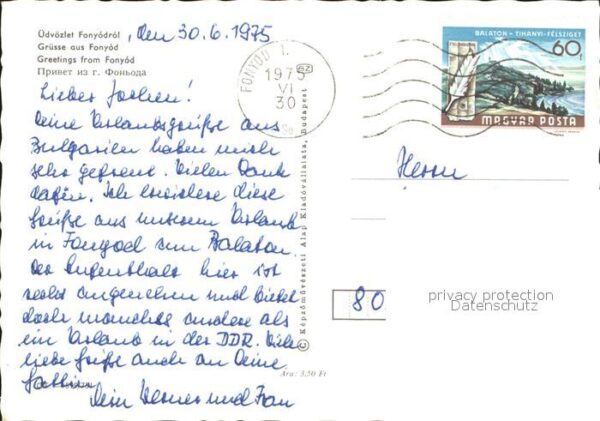 Üdvözlet Fonyódról
Grüsse aus Fonyód
Greetings from Fonyód
Привет из г. Фоньода
, den 30.6.1975
Lieber Jochen!
Deine Urlaubsgrüße aus
Bulgarien haben mich
sehr gefreut. Vielen Dank
dafür. Ich erwidere diese
Grüße aus unserem Urlaub
in Fonyod am Balaton.
Der Aufenthalt hier ist
recht angenehm und bietet
doch manches andere als
ein Urlaub in der DDR. Viele
liebe Grüße auch an Deine
Gattin
Dein Werner und Frau
FONYÓD 1.
1975
VI
30
BALATON - TIHANYI-FÉLSZIGET
60f
MAGYAR POSTA
© Képzőművészeti Alap Kiadóvállalata, Budapest
Herrn
80
privacy protection
Datenschutz
Ára: 3,50 Ft